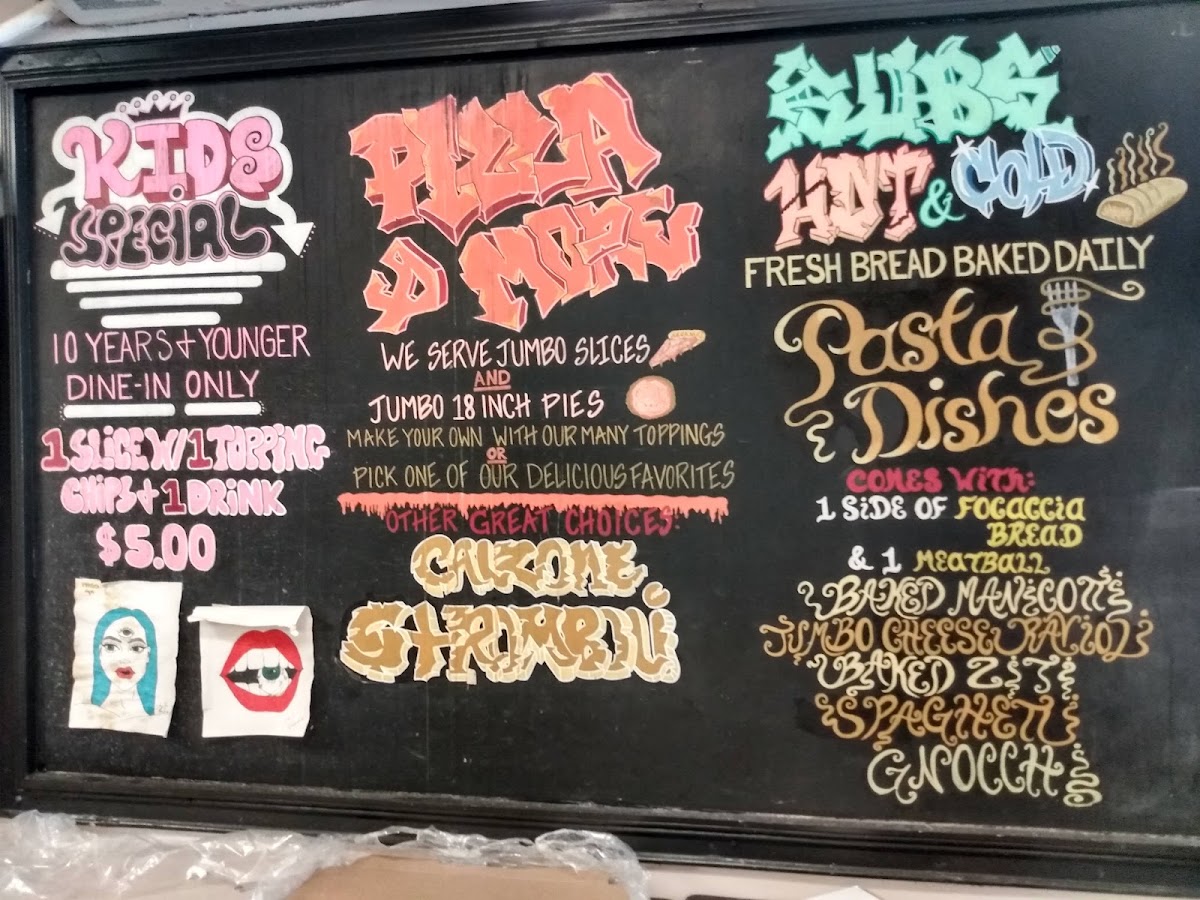 KIDS
SPECIAL
10 YEARS + YOUNGER
DINE-IN ONLY
1 SLICE W/ 1 TOPPING
CHIPS + 1 DRINK
$5.00
PIZZA
& MORE
WE SERVE JUMBO SLICES
AND
JUMBO 18 INCH PIES
MAKE YOUR OWN WITH OUR MANY TOPPINGS
OR
PICK ONE OF OUR DELICIOUS FAVORITES
OTHER GREAT CHOICES:
CALZONE
STROMBOLI
SUBS
HOT & COLD
FRESH BREAD BAKED DAILY
Pasta
Dishes
COMES WITH:
1 SIDE OF FOCACCIA
BREAD
& 1 MEATBALL
BAKED MANICOTTI
JUMBO CHEESE RAVIOLI
BAKED ZITI
SPAGHETTI
GNOCCHI